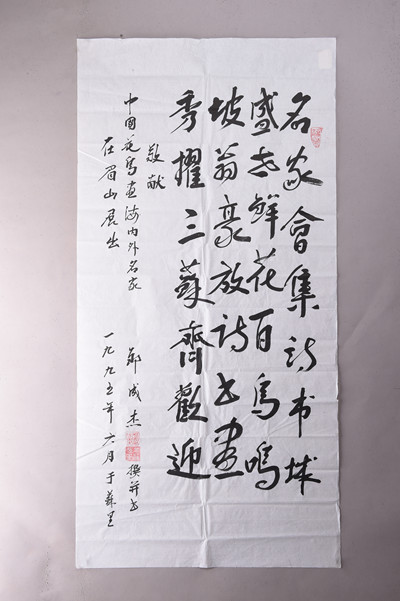 名家會集诗书城
盛世鲜花百鸟鳴
坡翁豪放诗书画
秀擢三蘇齊歡迎
敬献
中國花鸟画海内外名家
在眉山展出
鄭成杰 撰并书
一九九五年六月于蘇里